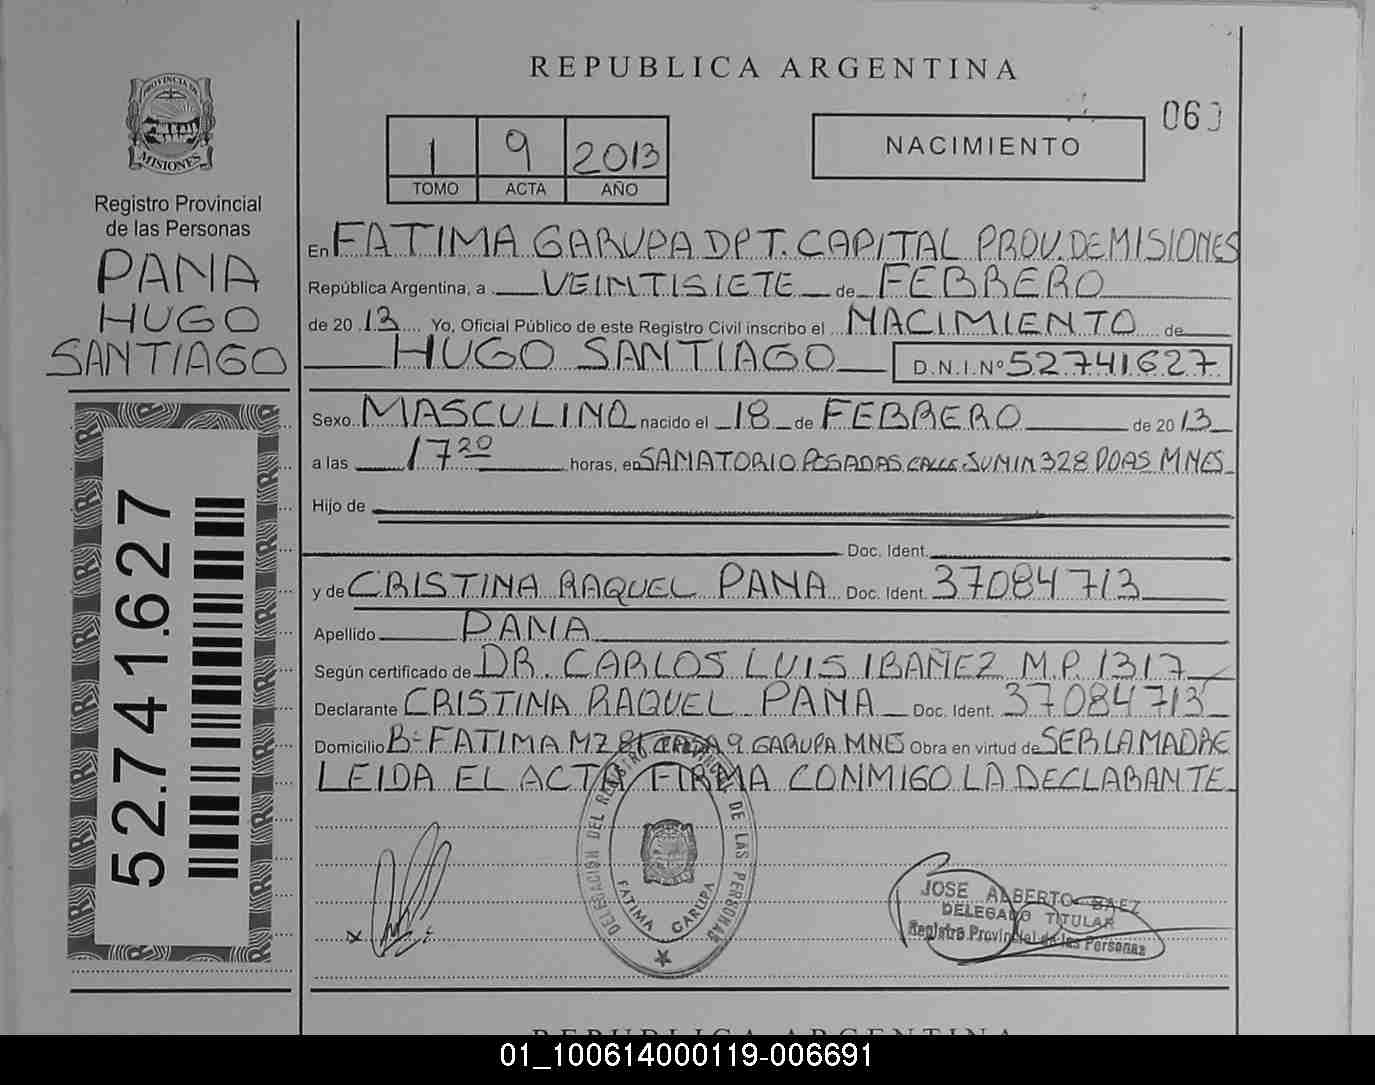 REPUBLICA ARGENTINA
PROVINCIA DE
MISIONES
Registro Provincial
de las Personas
PANA
HUGO
SANTIAGO
52.741.627
1 9 2013
TOMO ACTA AÑO
NACIMIENTO
En FATIMA GARUPA DPT. CAPITAL PROV. DE MISIONES
República Argentina, a VEINTISIETE de FEBRERO
de 20 13 Yo, Oficial Público de este Registro Civil inscribo el NACIMIENTO de
HUGO SANTIAGO D.N.I. Nº 52.741.627
Sexo MASCULINO nacido el 18 de FEBRERO de 20 13
a las 17 20 horas, en SANATORIO POSADAS CALLE JUNIN 328 PDAS MNES
Hijo de
Doc. Ident.
y de CRISTINA RAQUEL PANA Doc. Ident. 37084713
Apellido PANA
Según certificado de DR. CARLOS LUIS IBAÑEZ M.P. 1317
Declarante CRISTINA RAQUEL PANA Doc. Ident. 37084713
Domicilio Bº FATIMA MZ 81 CASA 9 GARUPA MNES Obra en virtud de SER LA MADRE
LEIDA EL ACTA FIRMA CONMIGO LA DECLARANTE
DELEGACIÓN DEL REGISTRO PROVINCIAL DE LAS PERSONAS
FATIMA GARUPA
JOSE ALBERTO BAEZ
DELEGADO TITULAR
Registro Provincial de las Personas
REPUBLICA ARGENTINA
01_100614000119-006691